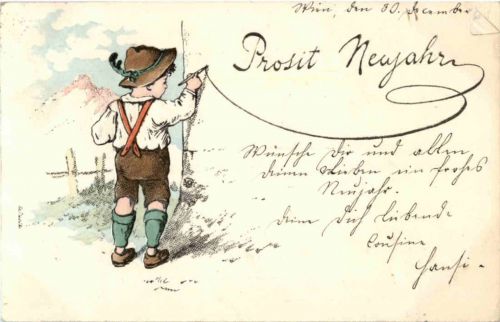 Wien, den 30. December
Prosit Neujahr
Wünsche Dir und allen
deinen Lieben ein frohes
Neujahr.
Deine Dich liebende
Cousine
Hansi -